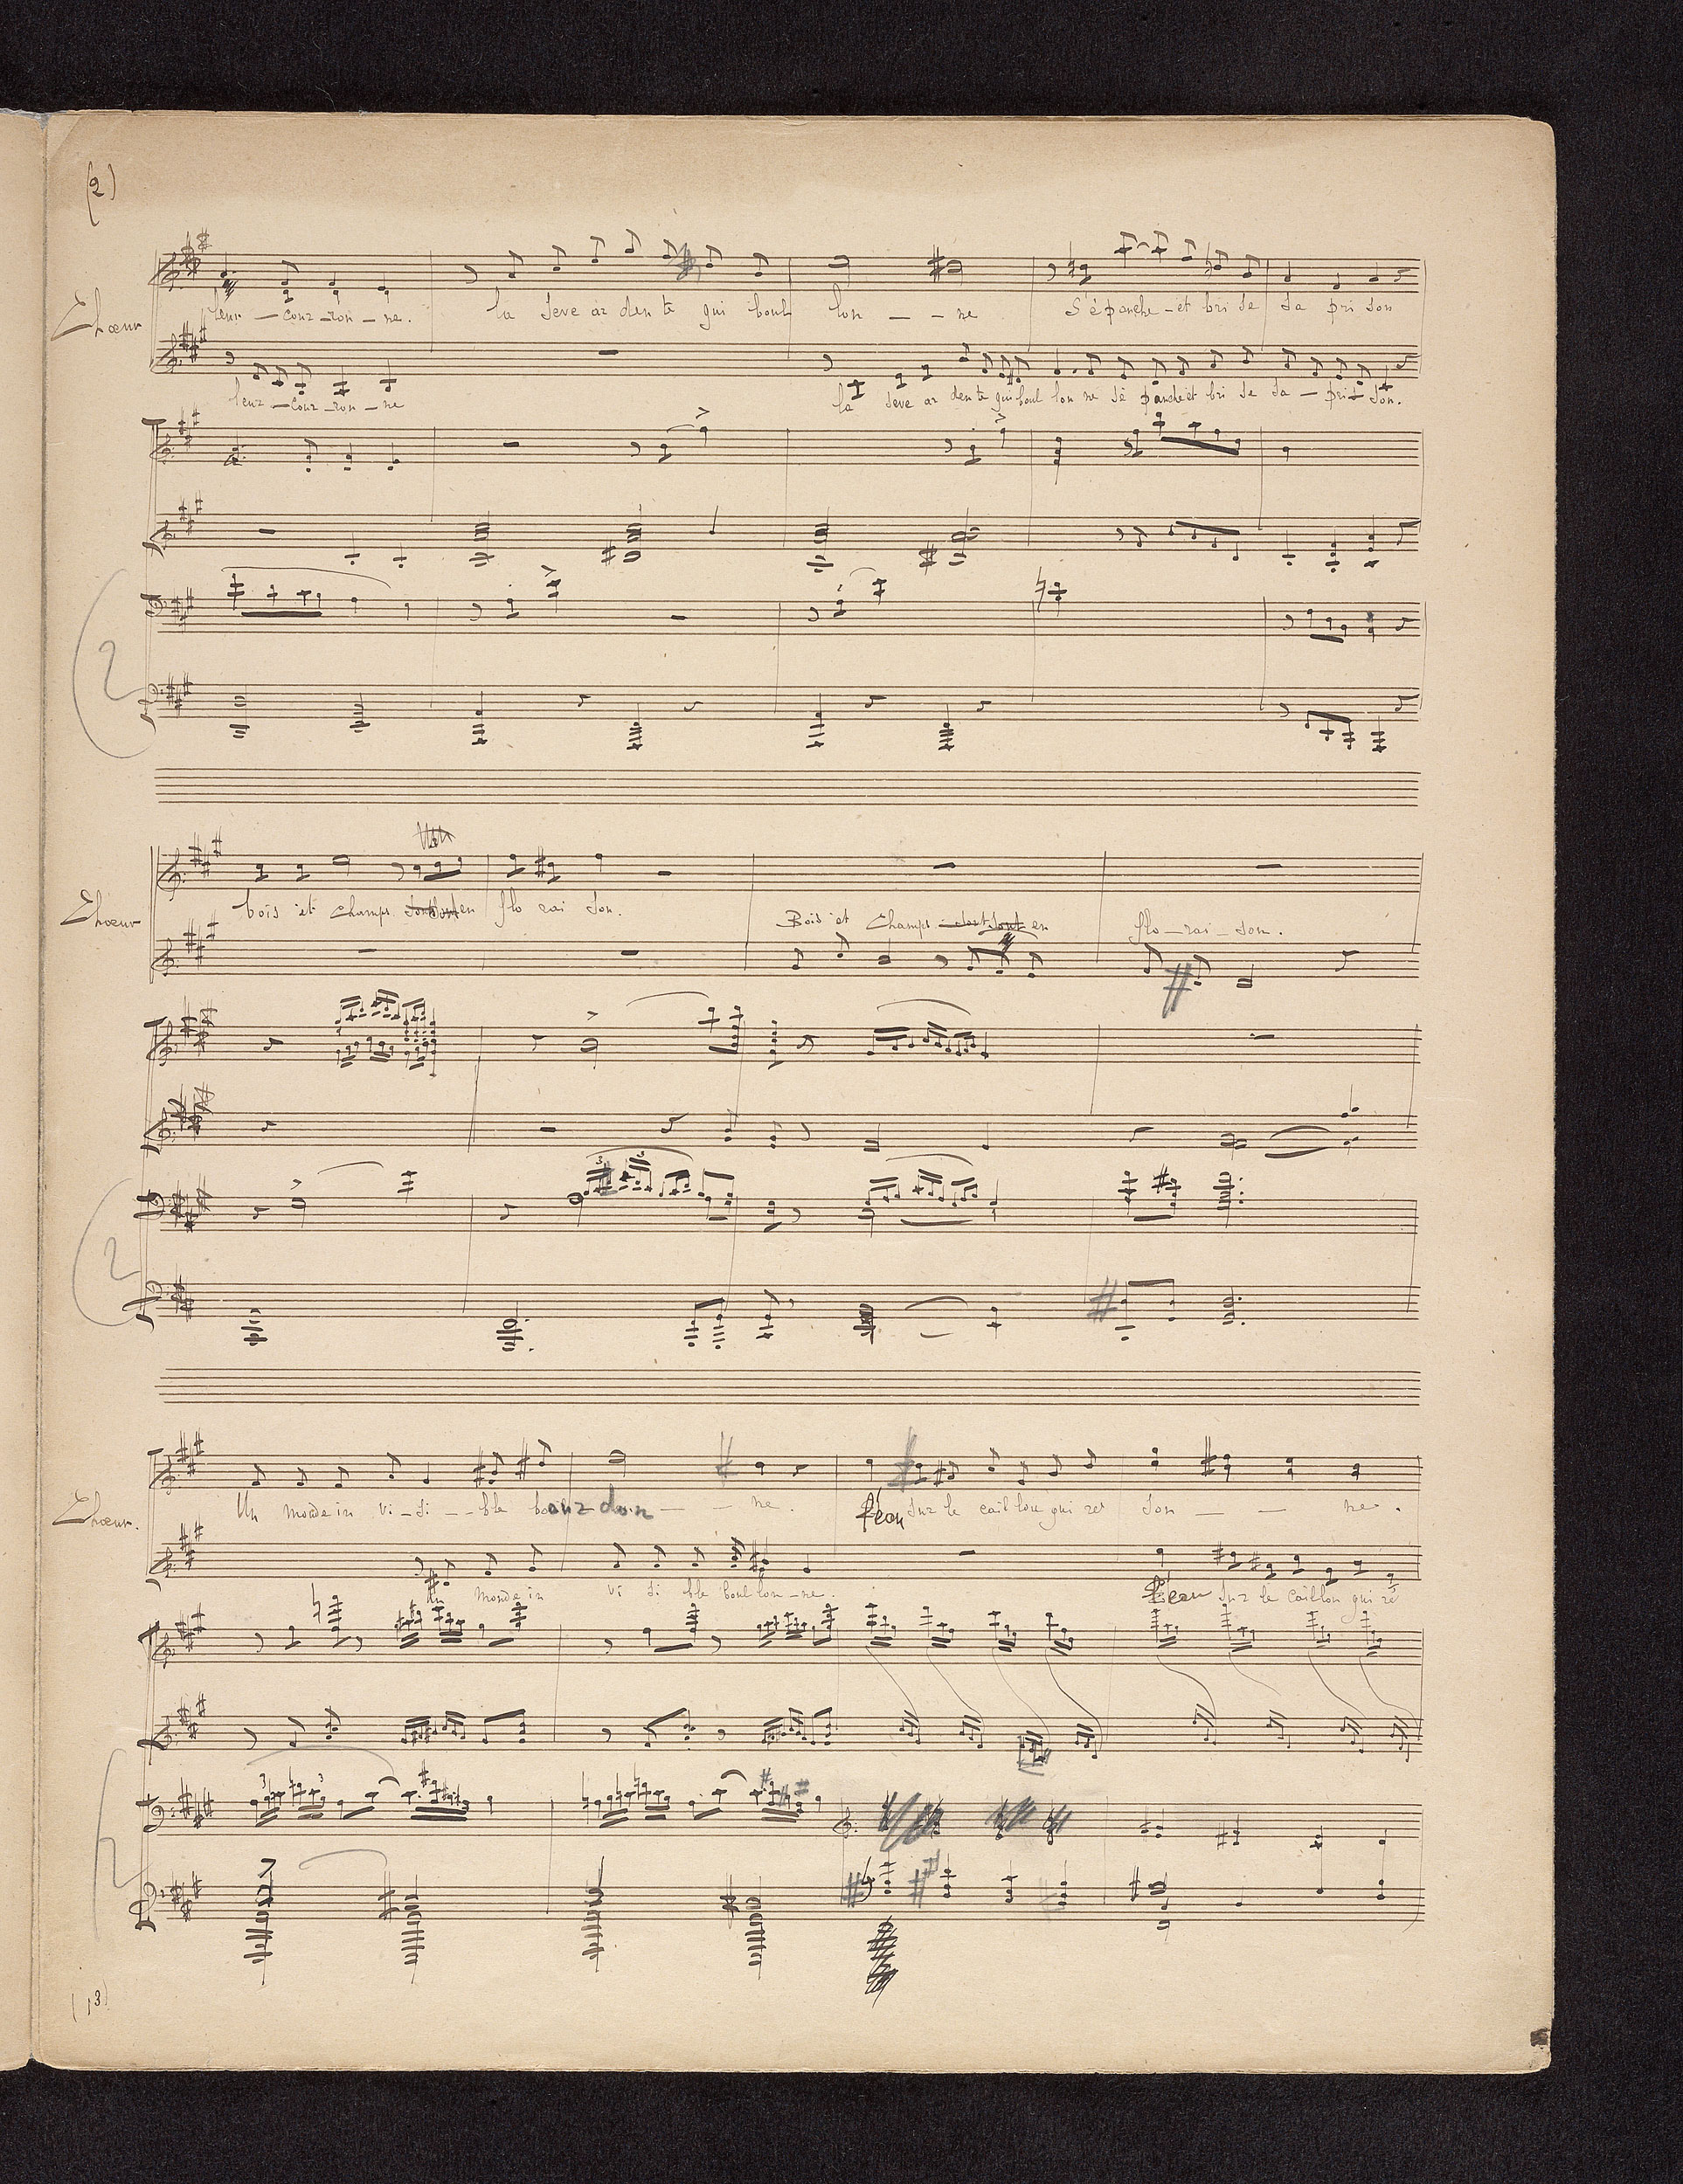 (2)
Chœur
leur — cour — ron — ne. la seve ar den te qui boul lon — — ne S'é panche — et bri se sa pri son
leur — cour — ron — ne la seve ar den te qui boul lon ne s'é panche et bri se sa — pri — son.
2
Chœur
bois et champs sont en flo rai son.
Bois et Champs sont en flo — rai — son.
3 3
2
Chœur.
Un monde in vi — si — — ble bour don — — ne. l'eau sur le cail lou qui res son — — ne.
Un monde in vi si ble boul lon — ne. l'eau sur le caillou qui ré
3 3
2
(13)